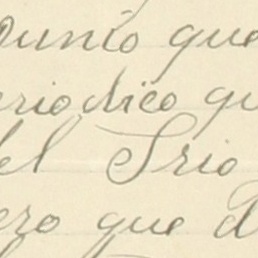 punto que
eriodico qu
del Srio
ero que d